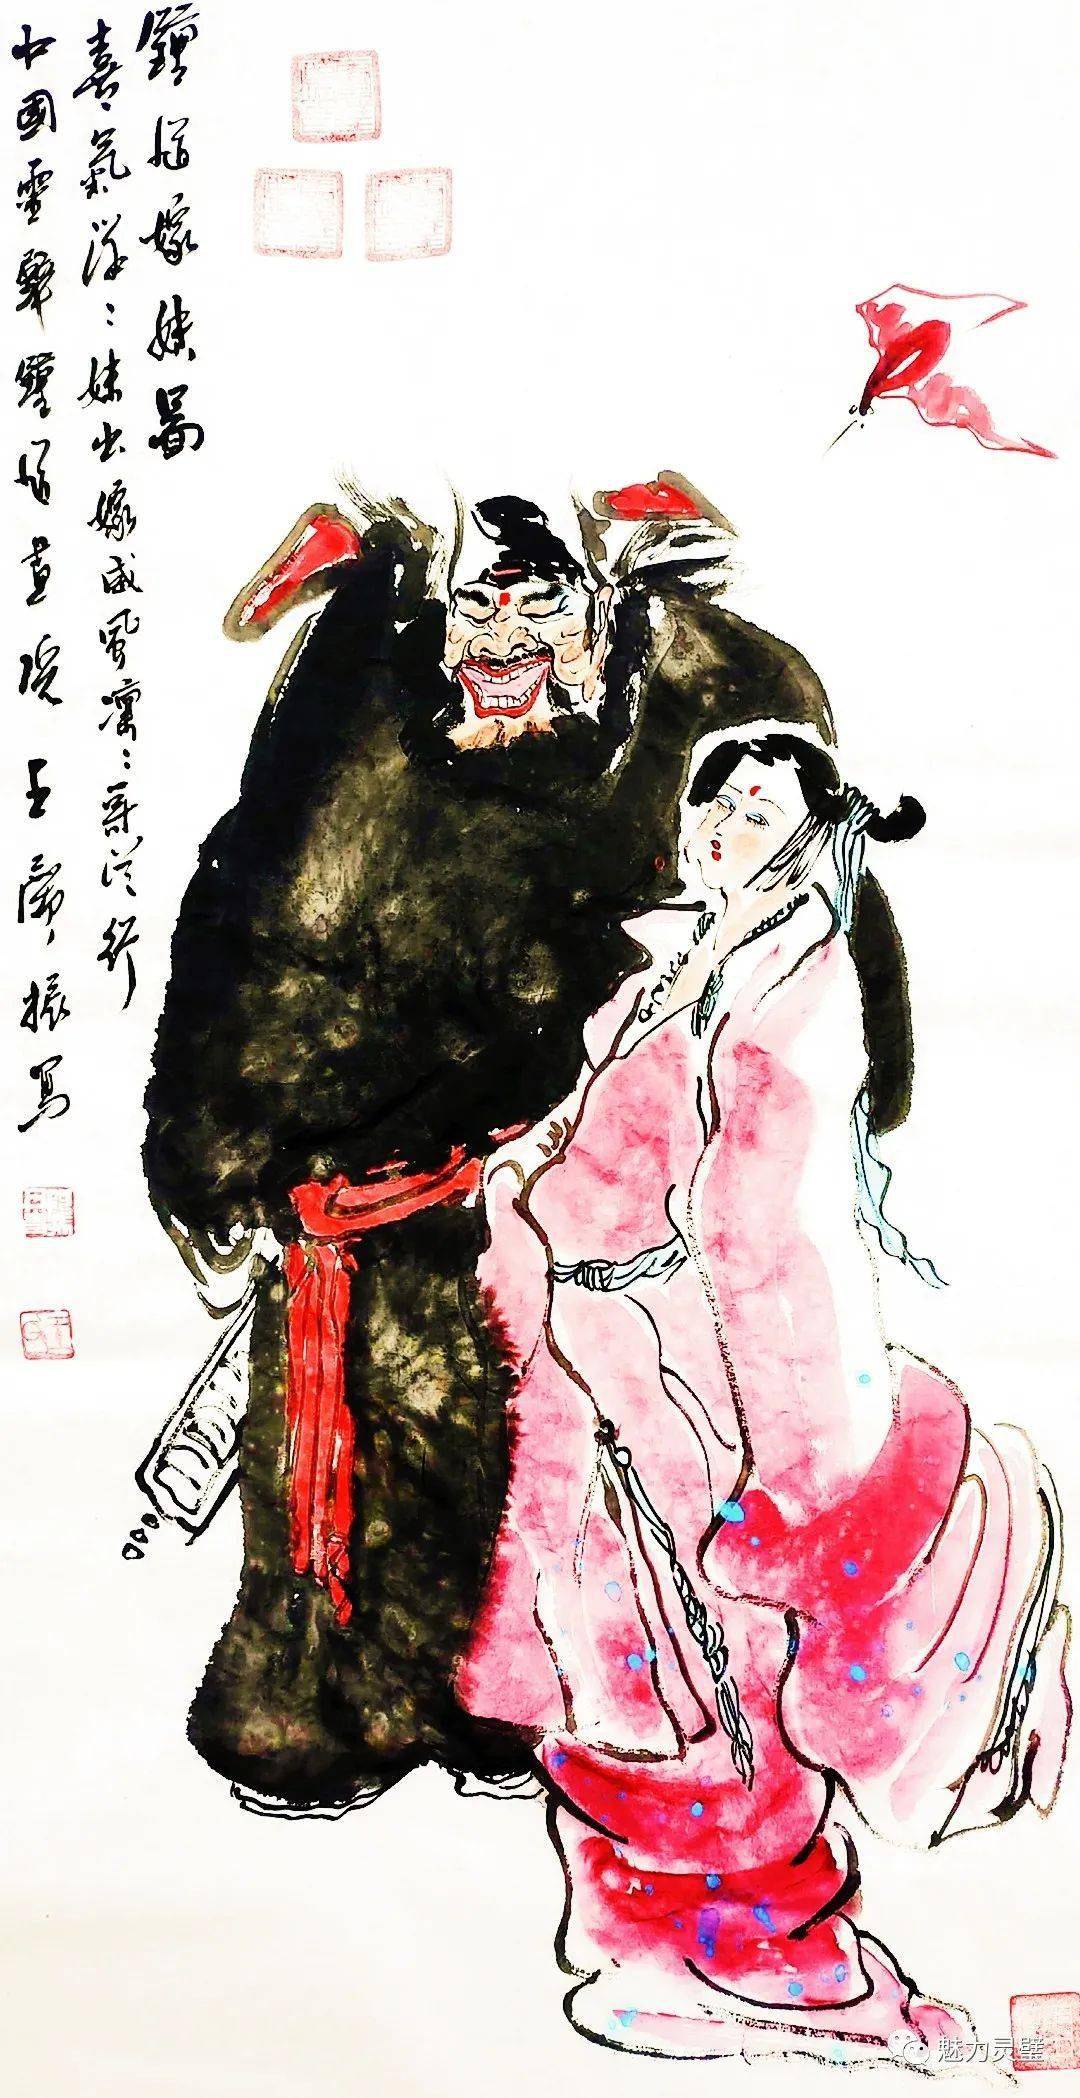 鍾馗嫁妹啚
喜氣洋〻妹出嫁威風凛〻哥送行
中國靈璧鍾馗畫院王廣振寫
魅力灵璧